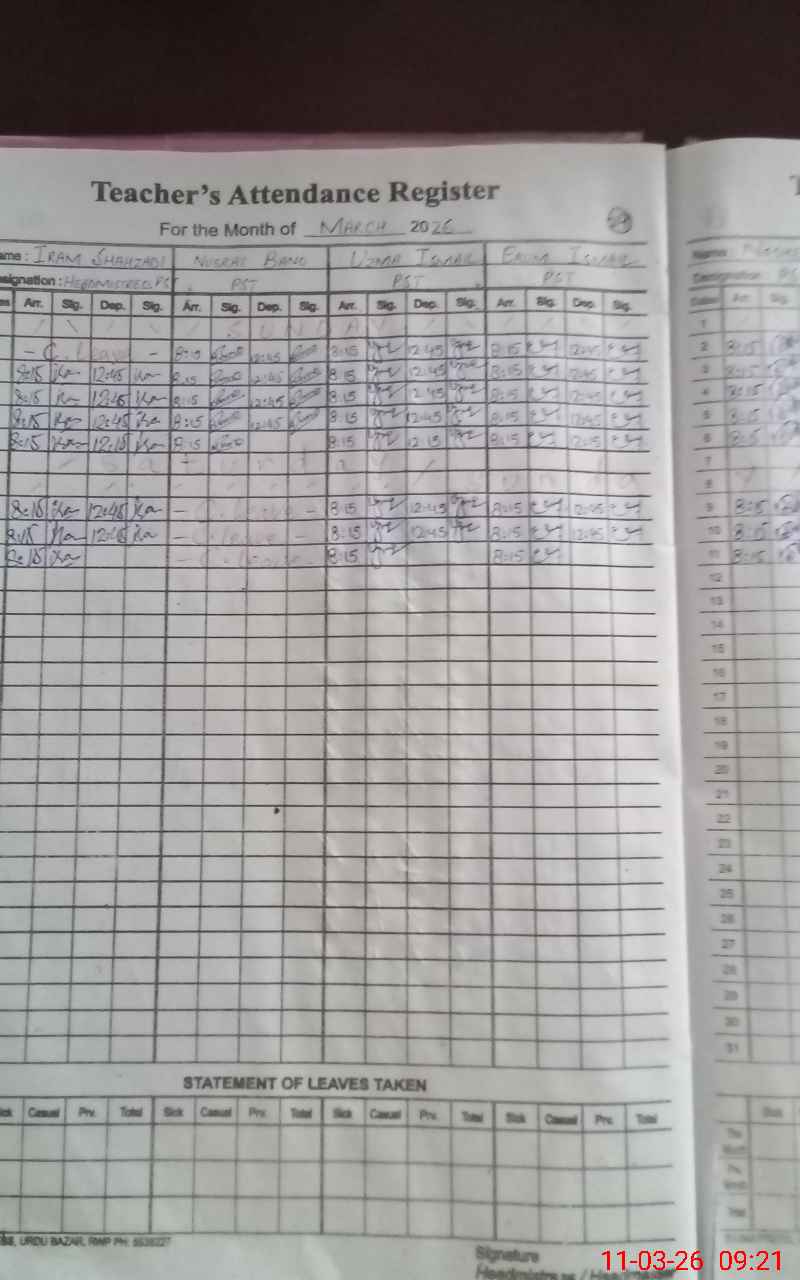 Teacher's Attendance Register
For the Month of MARCH 2026
ame: IRAM SHAHZADI NUSRAT BANO UZMA ISMAIL ISMAIL
esignation: HEADMISTRES, PST PST PST PST
es Arr. Sig. Dep. Sig. Arr. Sig. Dep. Sig. Arr. Sig. Dep. Sig. Arr. Sig. Dep. Sig.
SUNDAY
- C. Leave - 8:15 12:45 8:15 12:45 8:15 12:45
8:15 12:45 8:15 12:45 8:15 12:45 8:15 12:45
8:15 12:45 8:15 12:45 8:15 2:45 8:15 12:45
8:15 12:45 8:15 12:45 8:15 12:45 8:15 12:45
8:15 12:15 8:15 8:15 12:15 8:15 12:15
Saturday
8:15 12:45 - C. leave - 8:15 12:45 8:15 12:45
8:15 12:45 - C. leave - 8:15 12:45 8:15 12:45
8:15 - C. leave 8:15 8:15
STATEMENT OF LEAVES TAKEN
ick Casual Prv. Total Sick Casual Prv. Total Sick Casual Prv. Total Sick Casual Prv. Total
URDU BAZAR, RWP PH: 5539227
Signature
Headmistress / Headmaster
Name:
Designation
Dates Arr. Sig.
1
2 8:15
3 8:15
4 8:15
5 8:15
6 8:15
7
8
9 8:15
10 8:15
11 8:15
12
13
14
15
16
17
18
19
20
21
22
23
24
25
26
27
28
29
30
31
Sick
Total
11-03-26 09:21